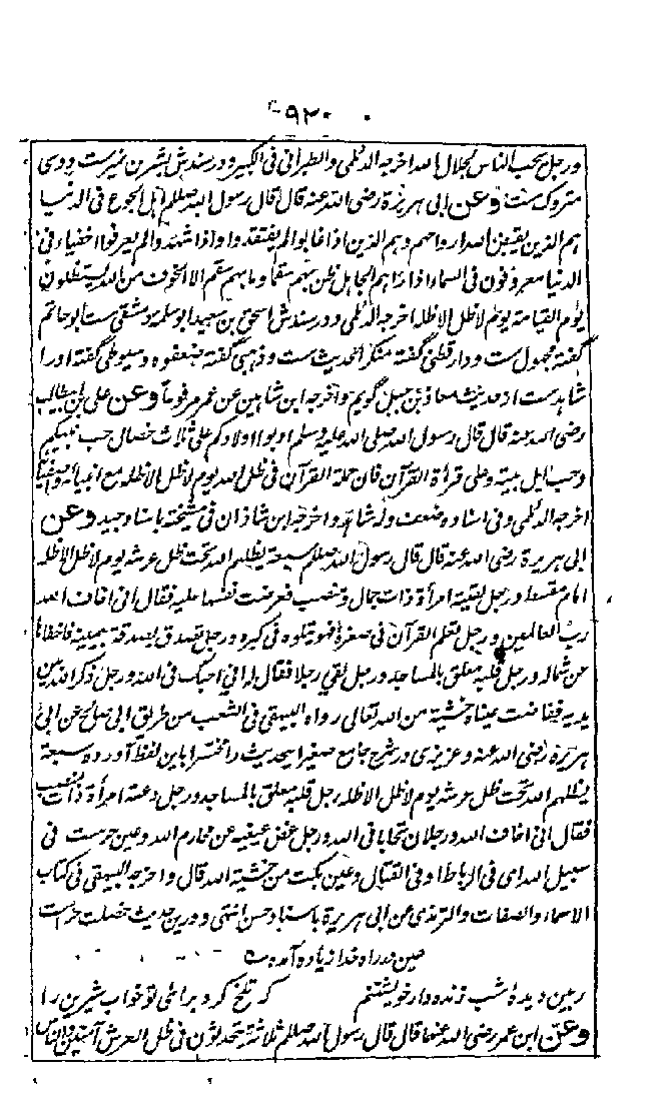 ۹۲۰
ورجل یحب الناس لجلال الله اخرجه الدیلمی والطبرانی فی الکبیر و در سندش بشر بن نمیرست و وی
متروک ست وعن ابی هریرة رضی الله عنه قال قال رسول الله صللم اهل الجوع فی الدنیا
هم الذین یقبض الله ارواحهم وهم الذین اذا غابوا لم یفتقدوا واذا شهدوا لم یعرفوا اخفیاء فی
الدنیا معروفون فی السماء اذا رآهم الجاهل ظن بهم سقما وما بهم سقم الا الخوف من الله یستظلون
یوم القیامة یوم لا ظل الا ظله اخرجه الدیلمی و در سندش اسحق بن سعید ابو سلمه دمشقی ست ابو حاتم
گفته مجهول ست و دارقطنی گفته منکر الحدیث ست و ذهبی گفته ضعفوه و سیوطی گفته او را
شاهدست از حدیث معاذ بن جبل گویم واخرجه ابن شاهین عن عمر مرفوعا وعن علی بن ابیطالب
رضی الله عنه قال قال رسول الله صلی الله علیه وسلم ادبوا اولادکم علی ثلاث خصال حب نبیکم
وحب اهل بیته وعلی قرأة القرآن فان حملة القرآن فی ظل الله یوم لا ظل الا ظله مع انبیائه واصفیائه
اخرجه الدیلمی وفی اسناده ضعف وله شاهد واخرجه ابن شاذان فی مشیخته باسناد جید وعن
ابی هریرة رضی الله عنه قال قال رسول الله صللم سبعة یظلهم الله تحت ظل عرشه یوم لا ظل الا ظله
امام مقسط ورجل لقیته امرأة ذات جمال ومنصب فعرضت نفسها علیه فقال انی اخاف الله
رب العالمین ورجل تعلم القرآن فی صغره فهو یتلوه فی کبره ورجل تصدق بصدقة بیمینه فاخفاها
عن شماله ورجل قلبه معلق بالمساجد ورجل لقی رجلا فقال له انی احبک فی الله ورجل ذکر الله بین
یدیه ففاضت عیناه خشیة من الله تعالی رواه البیهقی فی الشعب من طریق ابی صالح عن ابی
هریرة رضی الله عنه و عزیزی در شرح جامع صغیر این حدیث را مختصرا باین لفظ آورده سبعة
یظلهم الله تحت ظل عرشه یوم لا ظل الا ظله رجل قلبه معلق بالمساجد ورجل دعته امرأة ذات منصب
فقال انی اخاف الله ورجلان تحابا فی الله ورجل غض عینیه عن محارم الله وعین حرست فی
سبیل الله ای فی الرباط او فی القتال وعین بکت من خشیة الله قال واخرجه البیهقی فی کتاب
الاسماء والصفات والترمذی عن ابی هریرة باسناد حسن انتهی و درین حدیث خصلت حراست
عین در راه خدا زیاده آمده
رهین دیدهٔ شب زنده دار خویشتنم که تلخ کرد برای تو خواب شیرین را
وعن ابن عمر رضی الله عنهما قال قال رسول الله صللم ثلاثة یتحدثون فی ظل العرش آمنین والناس